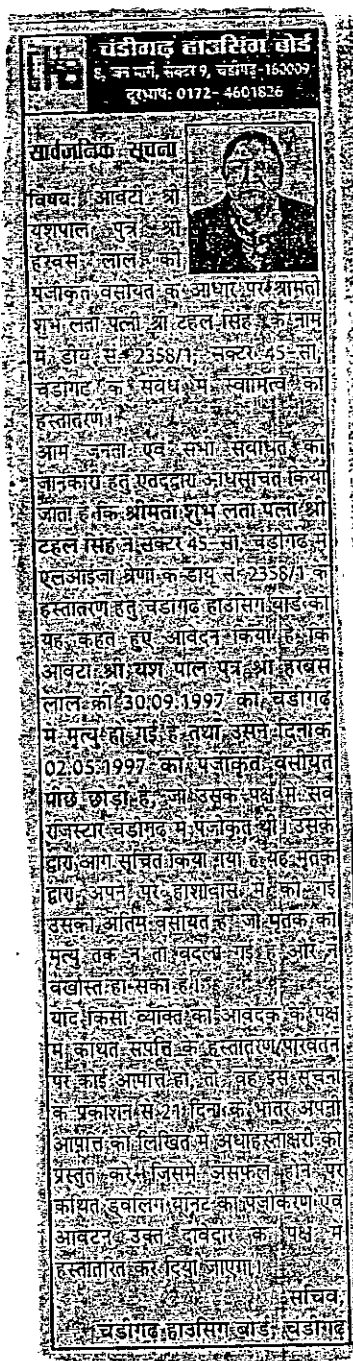 चंडीगढ़ हाउसिंग बोर्ड
8, जन मार्ग, सेक्टर 9, चंडीगढ़-160009,
दूरभाष: 0172- 4601826
सार्वजनिक सूचना
विषय: आवंटी श्री
यशपाल पुत्र श्री
हरबंस लाल की
पंजीकृत वसीयत के आधार पर श्रीमती
शुभ लता पत्नी श्री टहल सिंह के नाम
में डीयू सं. 2358/1, सेक्टर 45-सी,
चंडीगढ़ के संबंध में स्वामित्व का
हस्तांतरण।
आम जनता एवं सभी संबंधित की
जानकारी हेतु एतद्द्वारा अधिसूचित किया
जाता है कि श्रीमती शुभ लता पत्नी श्री
टहल सिंह ने सेक्टर 45-सी, चंडीगढ़ में
एलआईजी श्रेणी के डीयू सं. 2358/1 के
हस्तांतरण हेतु चंडीगढ़ हाउसिंग बोर्ड को
यह कहते हुए आवेदन किया है कि
आवंटी श्री यश पाल पुत्र श्री हरबंस
लाल की 30.09.1997 को चंडीगढ़
में मृत्यु हो गई है तथा उसने दिनांक
02.05.1997 को पंजीकृत वसीयत
पीछे छोड़ी है, जो उसके पक्ष में सब
रजिस्ट्रार चंडीगढ़ में पंजीकृत थी। उसके
द्वारा आगे सूचित किया गया है यह मृतक
द्वारा अपने पूरे होशोहवास में की गई
उसकी अंतिम वसीयत है जो मृतक की
मृत्यु तक न तो बदली गई है और न
बर्खास्त हो सकी है।
यदि किसी व्यक्ति को आवेदक के पक्ष
में कथित संपत्ति के हस्तांतरण/परिवर्तन
पर कोई आपत्ति हो, तो वह इस सूचना
के प्रकाशन से 21 दिनों के भीतर अपनी
आपत्ति को लिखित में अधोहस्ताक्षरी को
प्रस्तुत करे, जिसमें असफल होने पर
कथित ड्वेलिंग यूनिट का पंजीकरण एवं
आवंटन उक्त दावेदार के पक्ष में
हस्तांतरित कर दिया जाएगा।
सचिव,
चंडीगढ़ हाउसिंग बोर्ड, चंडीगढ़